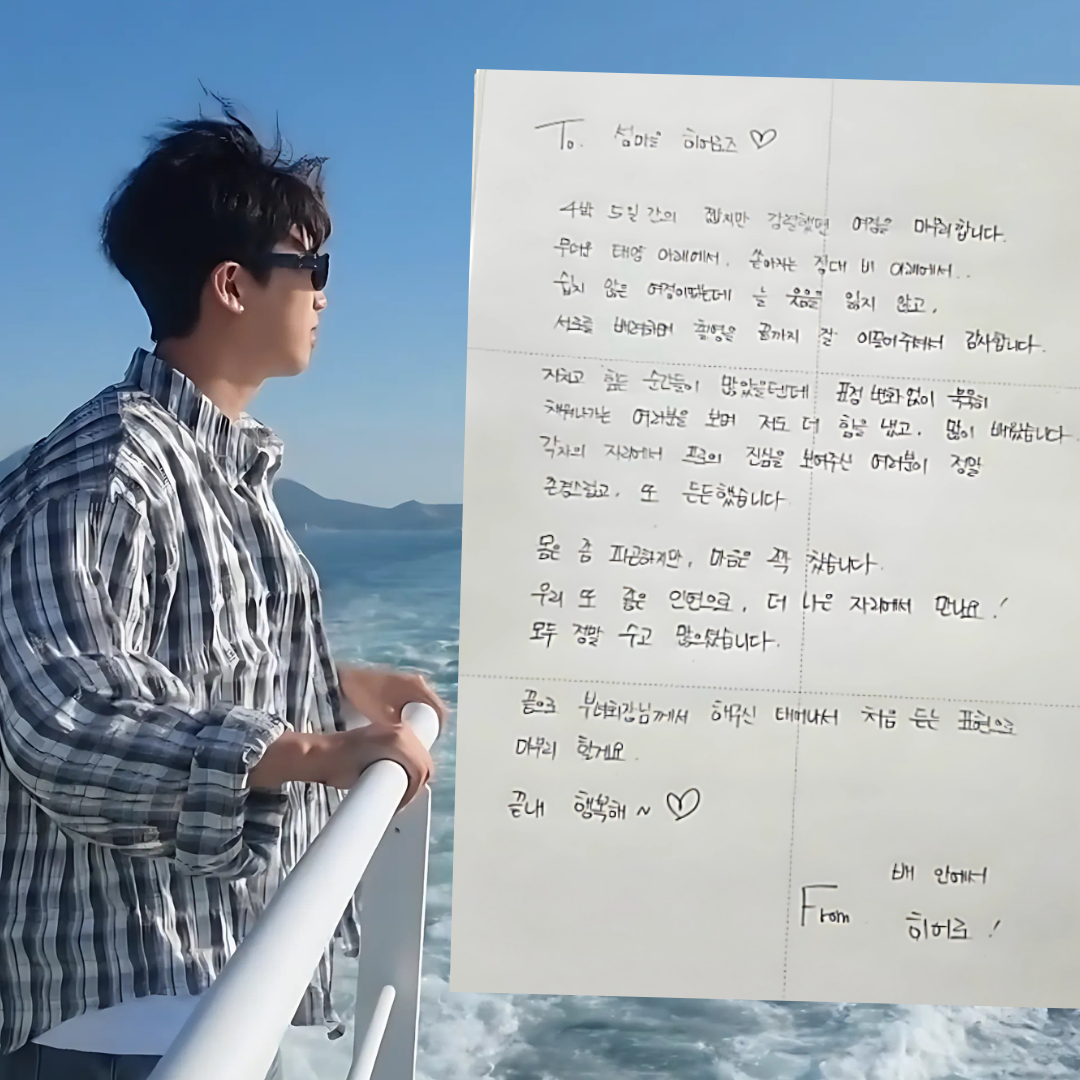 To. 섬마을 히어로즈 ♡
4박 5일 간의 짧지만 강렬했던 여정을 마무리합니다.
무더운 태양 아래에서, 쏟아지는 장대 비 아래에서..
쉽지 않은 여정이었는데 늘 웃음을 잃지 않고,
서로를 배려하며 촬영을 끝까지 잘 이끌어주셔서 감사합니다.
지치고 힘든 순간들이 많았을텐데 표정 변화 없이 묵묵히
채워나가는 여러분을 보며 저도 더 힘을 냈고, 많이 배웠습니다.
각자의 자리에서 프로의 진심을 보여주신 여러분이 정말
존경스럽고, 또 든든했습니다.
몸은 좀 피곤하지만, 마음은 꽉 찼습니다.
우리 또 좋은 인연으로, 더 나은 자리에서 만나요!
모두 정말 수고 많으셨습니다.
끝으로 부녀회장님께서 해주신 태어나서 처음 듣는 표현으로
마무리 할게요.
끝내 행복해~ ♡
배 안에서
From 히어로!